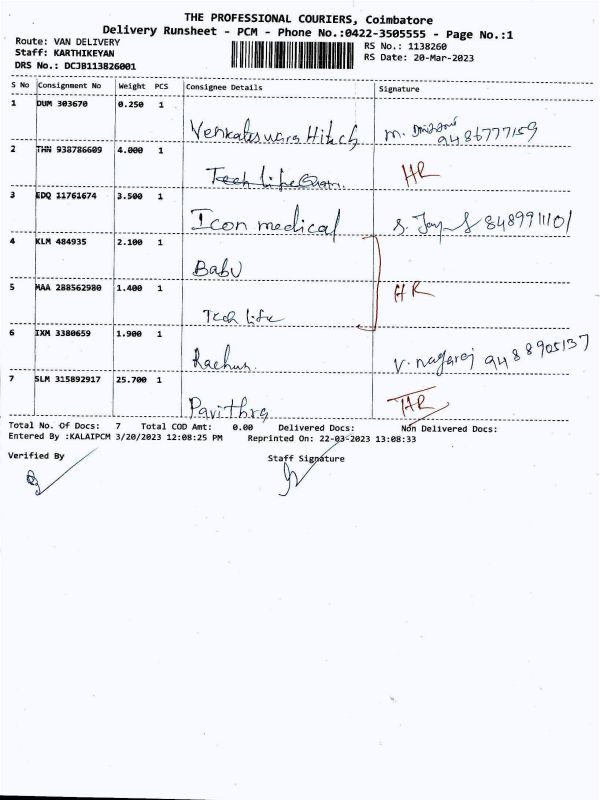 THE PROFESSIONAL COURIERS, Coimbatore
Delivery Runsheet - PCM - Phone No.:0422-3505555 - Page No.:1
Route: VAN DELIVERY
Staff: KARTHIKEYAN
DRS No.: DCJB113826001
RS No.: 1138260
RS Date: 20-Mar-2023
S No Consignment No Weight PCS Consignee Details Signature
1 DUM 303670 0.250 1
Venkateswara Hitech M. 9486777159
2 THN 938786609 4.000 1
Tech life HR
3 EDQ 11761674 3.500 1
Icon medical S. 8489911101
4 KLM 484935 2.100 1
Babu
5 MAA 288562980 1.400 1 HR
Tech life
6 IXM 3380659 1.900 1
V. nagaraj 9488905137
7 SLM 315892917 25.700 1
Pavithra HR
Total No. Of Docs: 7 Total COD Amt: 0.00 Delivered Docs: Non Delivered Docs:
Entered By :KALAIPCM 3/20/2023 12:08:25 PM Reprinted On: 22-03-2023 13:08:33
Verified By Staff Signature